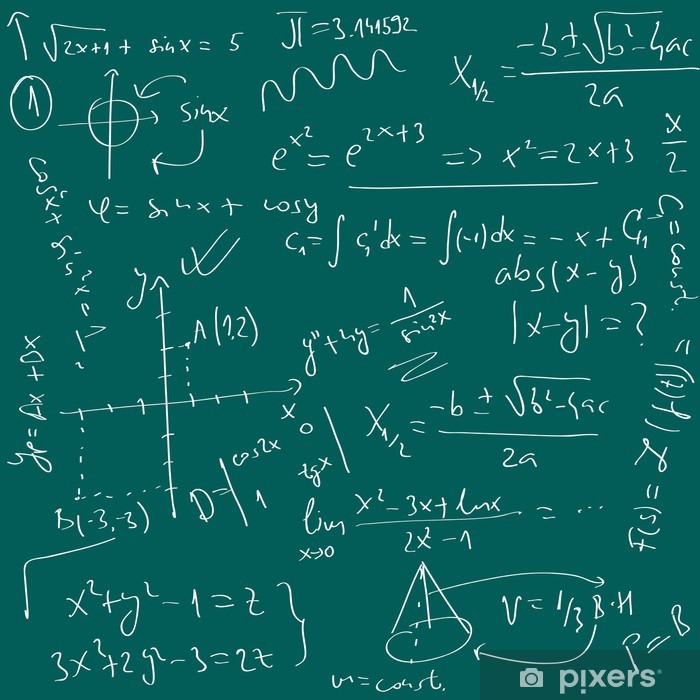 √2x+1 + sin x = 5
π = 3.141592
x₁/₂ = (-b ± √b²-4ac) / 2a
1
sin x
e^x² = e^2x+3 => x² = 2x+3
x/2
φ = sin x + cos y
C₁ = ∫ C₁' dx = ∫(-1) dx = -x + C₁
C₁ = const.
abs(x-y)
|x-y| = ?
y
A(1,2)
y'' + 4y = 1 / sin²x
x
0
x₁/₂ = (-b ± √b²-4ac) / 2a
cos2x
tgx
D =
1
B(-3,-3)
lim x→0 (x² - 3x + ln x) / (2x² - 1) = ...
x² + y² - 1 = z
3x³ + 2y² - 3 = 2z
V = 1/3 B·H
P = B
m = const.
pixers